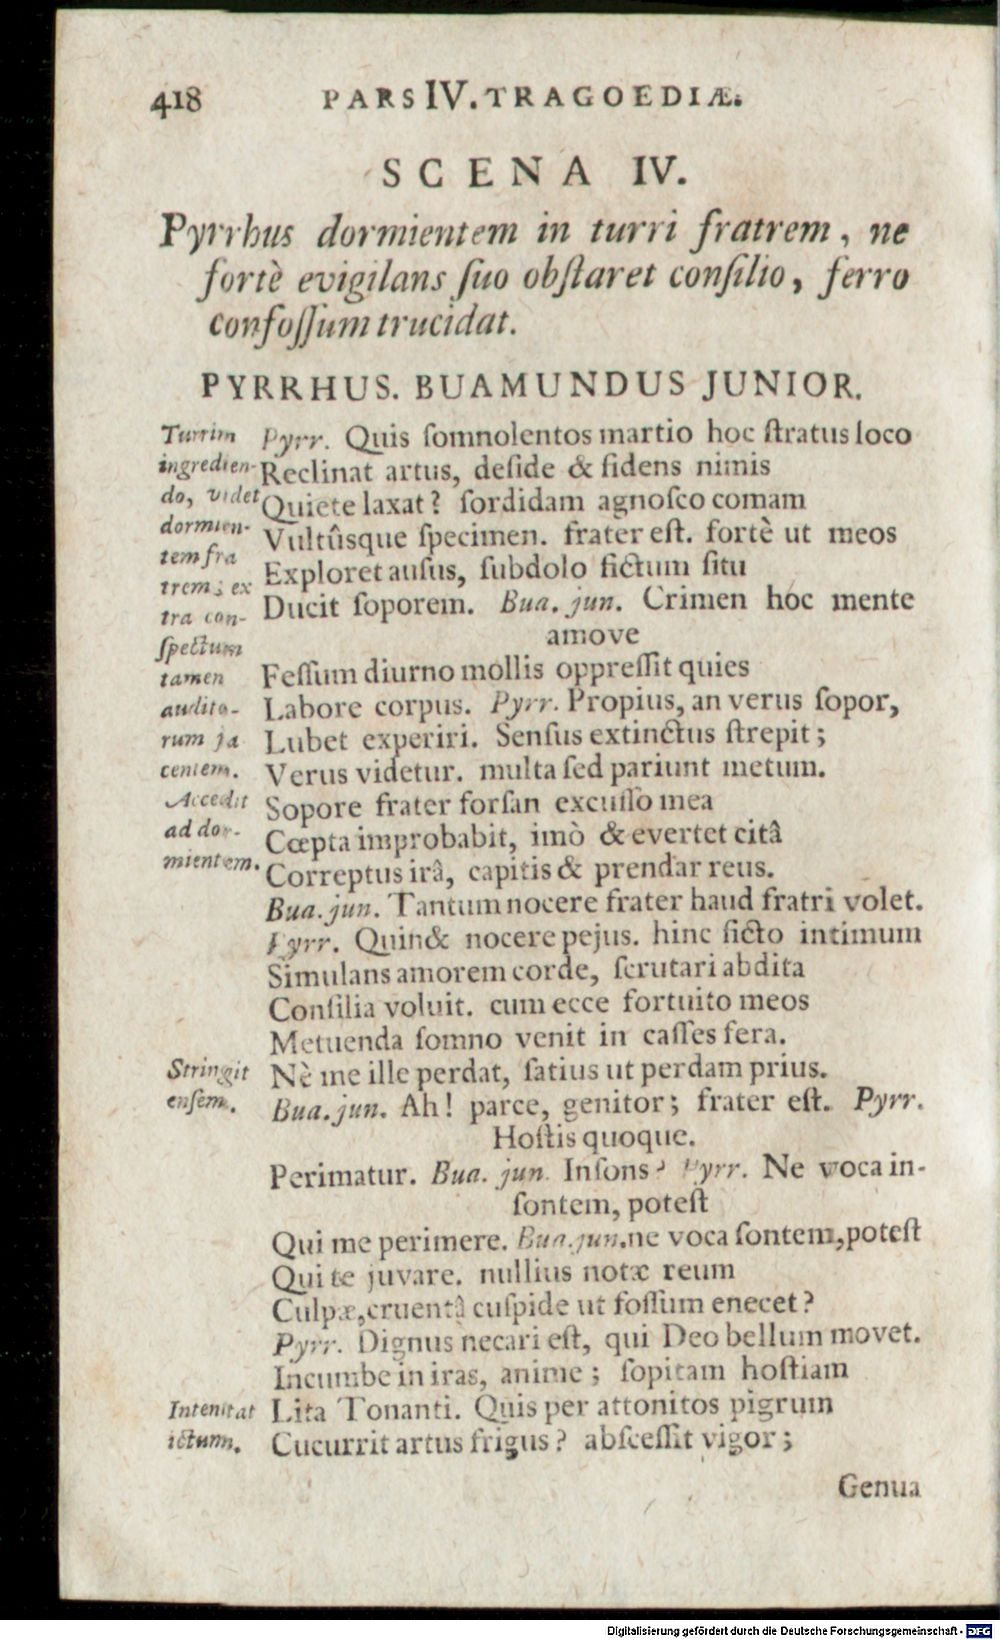 418 PARS IV. TRAGOEDIÆ.
SCENA IV.
Pyrrhus dormientem in turri fratrem, ne
fortè evigilans ſuo obſtaret conſilio, ferro
confoſſum trucidat.
PYRRHUS. BUAMUNDUS JUNIOR.
Turrim
ingredien-
do, videt
dormien-
tem fra
trem; ex
tra con-
ſpectum
tamen
audito-
rum ja
centem.
Accedit
ad dor-
mientem.
Pyrr. Quis ſomnolentos martio hoc ſtratus loco
Reclinat artus, deſide & fidens nimis
Quiete laxat? ſordidam agnoſco comam
Vultûsque ſpecimen. frater eſt. fortè ut meos
Exploret auſus, ſubdolo fictum ſitu
Ducit ſoporem. Bua. jun. Crimen hoc mente
amove
Feſſum diurno mollis oppreſſit quies
Labore corpus. Pyrr. Propius, an verus ſopor,
Lubet experiri. Senſus extinctus ſtrepit;
Verus videtur. multa ſed pariunt metum.
Sopore frater forſan excuſſo mea
Cœpta improbabit, imò & evertet citâ
Correptus irâ, capitis & prendar reus.
Bua. jun. Tantum nocere frater haud fratri volet.
Pyrr. Quin & nocere pejus. hinc ficto intimum
Simulans amorem corde, ſcrutari abdita
Conſilia voluit. cum ecce fortuito meos
Metuenda ſomno venit in caſſes fera.
Stringit
enſem.
Nè me ille perdat, ſatius ut perdam prius.
Bua. jun. Ah! parce, genitor; frater eſt. Pyrr.
Hoſtis quoque.
Perimatur. Bua. jun. Inſons? Pyrr. Ne voca in-
ſontem, poteſt
Qui me perimere. Bua. jun. ne voca ſontem, poteſt
Qui te juvare. nullius notæ reum
Culpæ, cruentâ cuſpide ut foſſum enecet?
Pyrr. Dignus necari eſt, qui Deo bellum movet.
Incumbe in iras, anime; ſopitam hoſtiam
Intentat
ictum.
Lita Tonanti. Quis per attonitos pigrum
Cucurrit artus frigus? abſceſſit vigor;
Genua
Digitalisierung gefördert durch die Deutsche Forschungsgemeinschaft - DFG